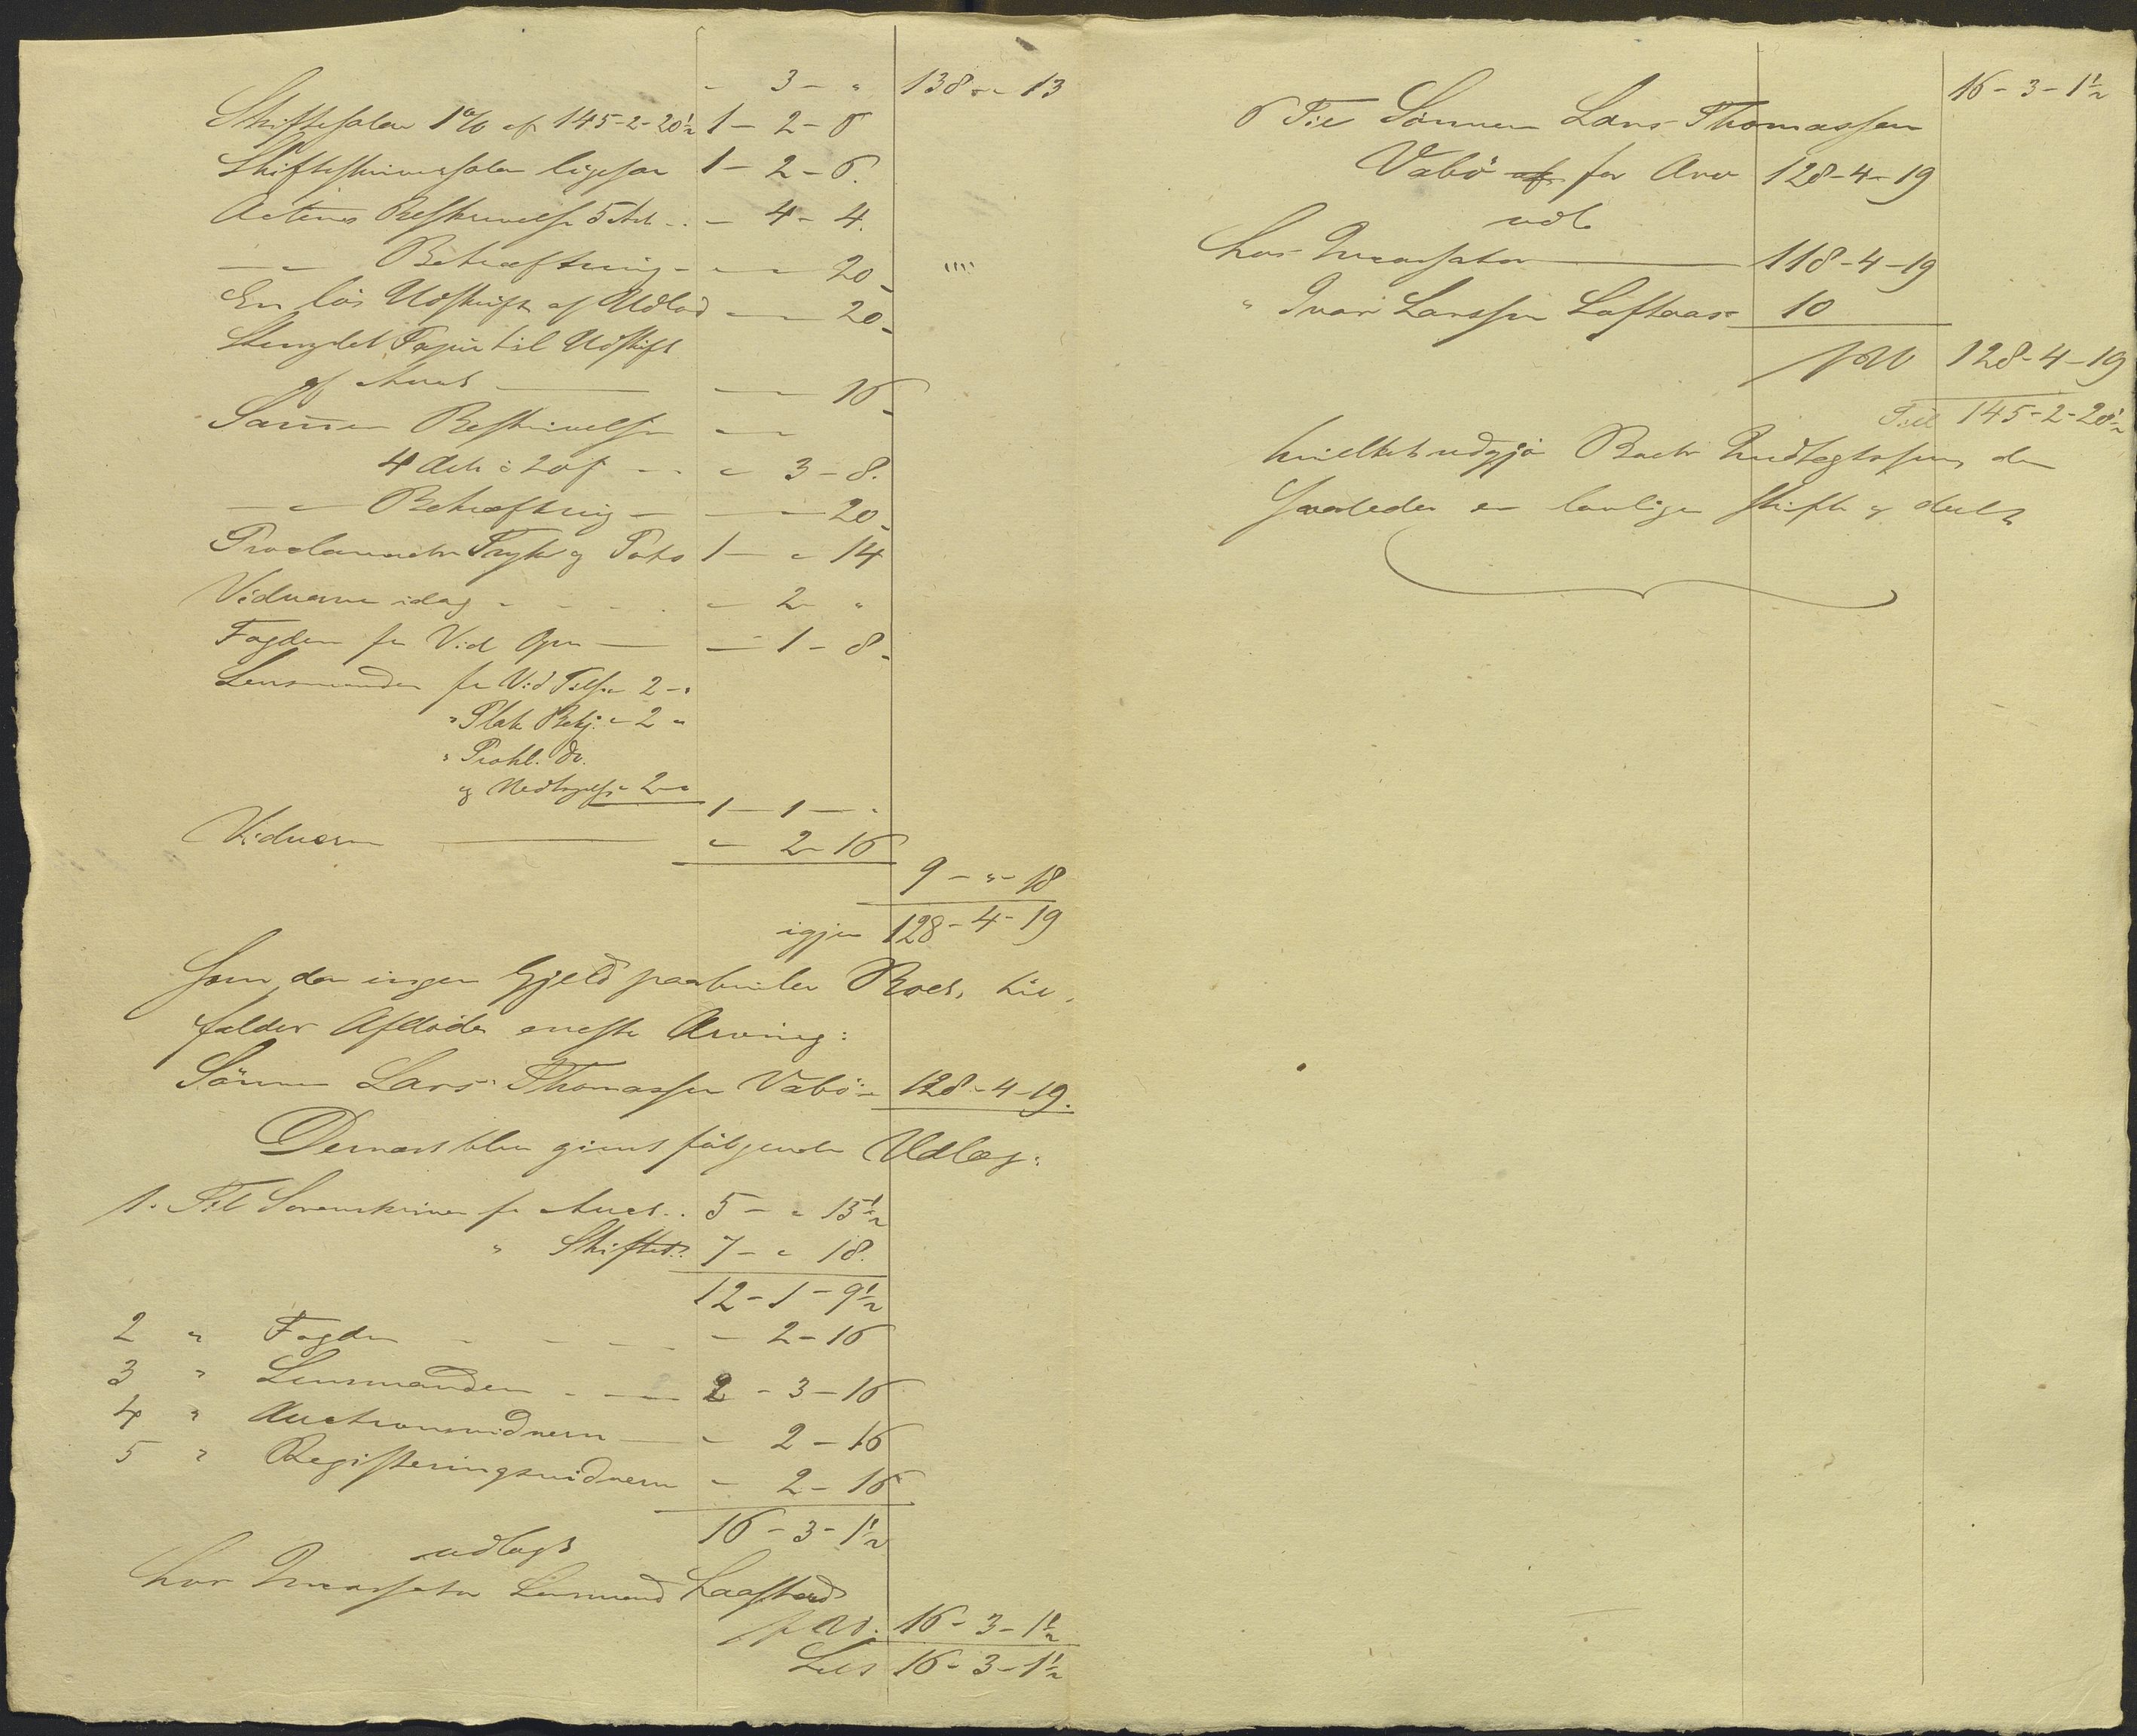 - 3 - " 138 - " - 13
Skiftesalær 1% af 145-2-20½ 1 - 2 - 6
Skifteskriversalær ligesaa 1 - 2 - 6.
Actens Beskrivelse 5 Ark - 4 - 4.
— " Bekræftning - - 20
En løs Udskrift af Udlæg — 20
Stemplet Papir til Udskrift
af Auct — — 16
Sammes Beskrivelse —
4 Ark à 20 s " 3 - 8.
— " Bekræftning — — 20
Proclamaets Trykn og Porto 1 - " 14
Vidnerne idag - - - " 2 "
Fogden for Vid Gjen — — 1 - 8
Lensmanden for Vid Tilsn 2 - "
" Plak Bekj. " 2 "
" Prokl. do.
og Nedtagelse 2 - "
1 - 1 - "
Vidnerne — " 2 - 16
9 - " - 18
igjen 128 - 4 - 19
som, da ingen Gjeld paahviler Boet, til-
falder Afdødes eneste Arving:
Sønnen Lars Thomassen Vabø 128 - 4 - 19.
Dernæst blev givet følgende Udlæg:
1. Til Sorenskriveren for Auct. 5 - " 15½
" Skiftet 7 - " 18.
12 - 1 - 9½
2 " Fogden - - - - 2 - 16
3 " Lensmanden - — 2 - 3 - 16
4 " Auctionsvidnerne — " 2 - 16
5 " Registreringsvidnerne " 2 - 16
16 - 3 - 1½
udlagt
hos Incassator Lensmand Laastad
16 - 3 - 1½
Lats 16 - 3 - 1½
16 - 3 - 1½
6 Til Sønnen Lars Thomassen
Vabø af for Arv 128 - 4 - 19
udl
hos Incassator — 118 - 4 - 19
" Ivar Larssen Løftaas 10
128 - 4 - 19
Till 145 - 2 - 20½
hvilket udgjør Boets Indtægtssum, der
saaledes er lovligen skiftet og deelt